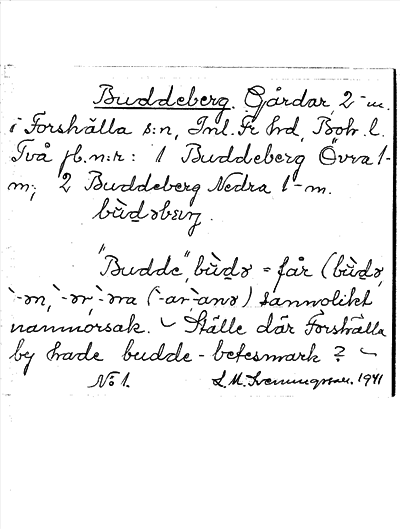 Buddeberg. Gårdar, 2-m.
i Forshälla s:n, Inl. Fr hd, Boh. l.
Två jb.n:r: 1 Buddeberg Övra 1-
m; 2 Buddeberg Nedra 1-m.
bùdəbærj.
"Budde", bùdə = får (bùdə,
`-ən, `-ər, `-əra (`-ar, `-anə) sannolikt
namnorsak. Ställe där Forshälla
by hade budde-betesmark?
No 1. 1941